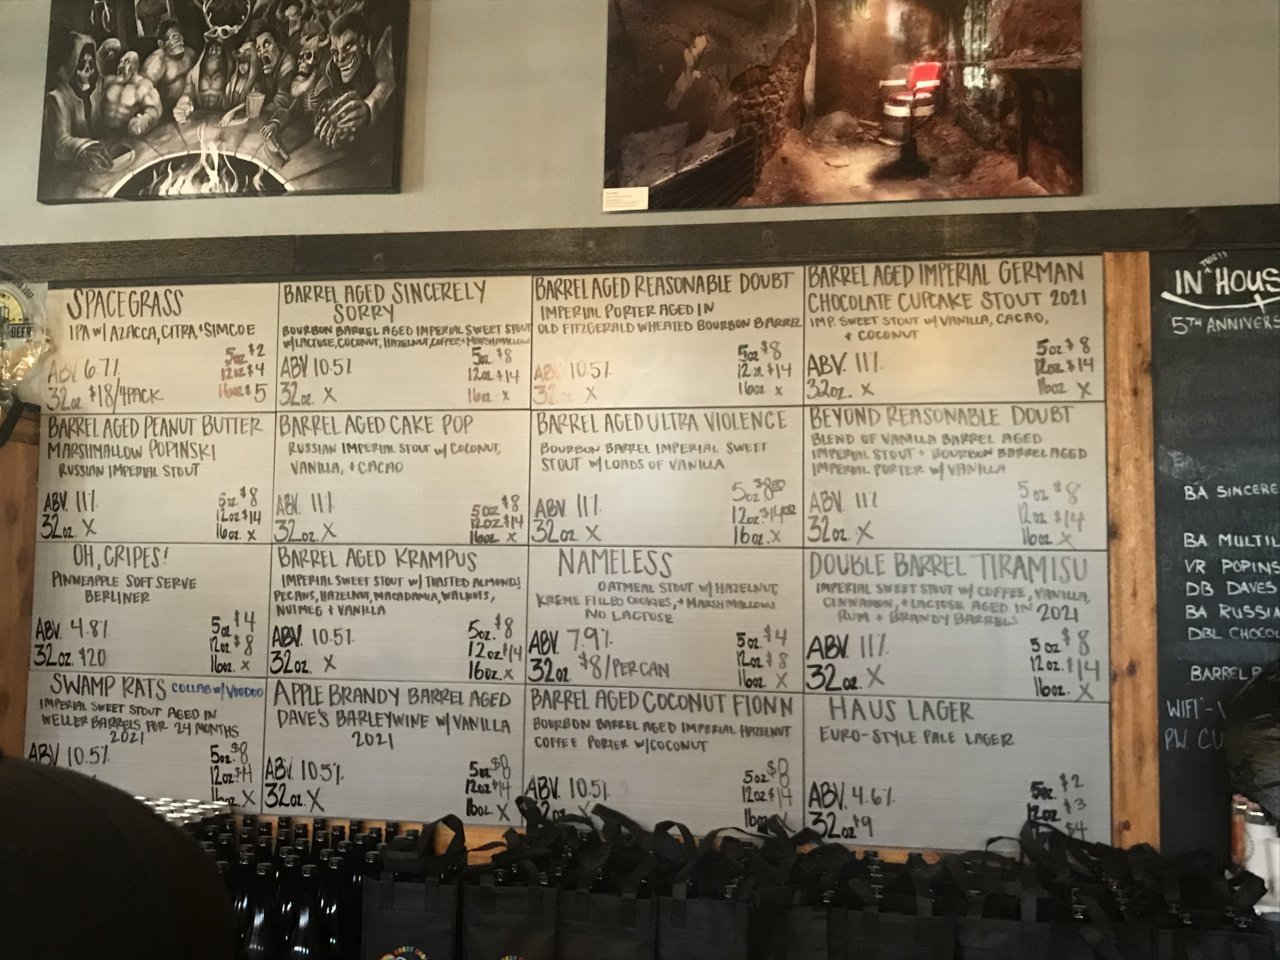 SPACEGRASS
IPA w/ AZACCA, CITRA, + SIMCOE
ABV 6.7%
32oz. $18/4PACK
5oz $2
12oz $4
16oz $5
BARREL AGED SINCERELY
SORRY
BOURBON BARREL AGED IMPERIAL SWEET STOUT
w/LACTOSE, COCONUT, HAZELNUT, COFFEE + MARSHMALLOW
ABV 10.5%
32oz. X
5oz. $8
12oz $14
16oz. X
BARREL AGED REASONABLE DOUBT
IMPERIAL PORTER AGED IN
OLD FITZGERALD WHEATED BOURBON BARREL
ABV 10.5%
32oz. X
5oz $8
12oz $14
16oz X
BARREL AGED IMPERIAL GERMAN
CHOCOLATE CUPCAKE STOUT 2021
IMP. SWEET STOUT w/ VANILLA, CACAO,
+ COCONUT
ABV. 11%
32oz. X
5oz $8
12oz $14
16oz X
BARREL AGED PEANUT BUTTER
MARSHMALLOW POPINSKI
RUSSIAN IMPERIAL STOUT
ABV. 11%
32oz. X
5oz. $8
12oz $14
16oz. X
BARREL AGED CAKE POP
RUSSIAN IMPERIAL STOUT w/ COCONUT,
VANILLA, + CACAO
ABV. 11%
32oz. X
5oz $8
12oz $14
16oz. X
BARREL AGED ULTRA VIOLENCE
BOURBON BARREL IMPERIAL SWEET
STOUT w/ LOADS OF VANILLA
ABV. 11%
32oz. X
5oz $8.00
12oz $14.00
16oz. X
BEYOND REASONABLE DOUBT
BLEND OF VANILLA BARREL AGED
IMPERIAL STOUT + BOURBON BARREL AGED
IMPERIAL PORTER w/ VANILLA
ABV. 11%
32oz. X
5oz $8
12oz $14
16oz. X
OH, CRIPES!
PINNEAPPLE SOFT SERVE
BERLINER
ABV 4.8%
32oz. $20
5oz $4
12oz $8
16oz. X
BARREL AGED KRAMPUS
IMPERIAL SWEET STOUT w/ TOASTED ALMONDS
PECANS, HAZELNUT, MACADAMIA, WALNUTS,
NUTMEG + VANILLA
ABV. 10.5%
32oz. X
5oz. $8
12oz $14
16oz. X
NAMELESS
OATMEAL STOUT w/ HAZELNUT,
KREME FILLED COOKIES, + MARSHMALLOWS
NO LACTOSE
ABV. 7.9%
32oz $8/PER CAN
5oz $4
12oz $8
16oz. X
DOUBLE BARREL TIRAMISU
IMPERIAL SWEET STOUT w/ COFFEE, VANILLA,
CINNAMON, + LACTOSE AGED IN 2021
RUM + BRANDY BARRELS
ABV. 11%
32oz. X
5oz $8
12oz. $14
16oz. X
SWAMP RATS COLLAB w/ VOODOO
IMPERIAL SWEET STOUT AGED IN
WELLER BARRELS FOR 24 MONTHS
2021
ABV 10.5%
5oz. $8
12oz $14
16oz X
APPLE BRANDY BARREL AGED
DAVE'S BARLEYWINE w/ VANILLA
2021
ABV. 10.5%
32oz. X
5oz $8
12oz $14
16oz. X
BARREL AGED COCONUT FIONN
BOURBON BARREL AGED IMPERIAL HAZELNUT
COFFEE PORTER w/COCONUT
ABV. 10.5%
32oz
5oz $8
12oz $14
16oz X
HAUS LAGER
EURO-STYLE PALE LAGER
ABV. 4.6%
32oz $9
5oz. $2
12oz $3
$4
IN THE HOUS
5TH ANNIVERS
BA SINCERE
BA MULTIL
VR POPINS
DB DAVES
BA RUSSIA
DBL CHOCO
BARREL
WIFI -
PW CU
BEER